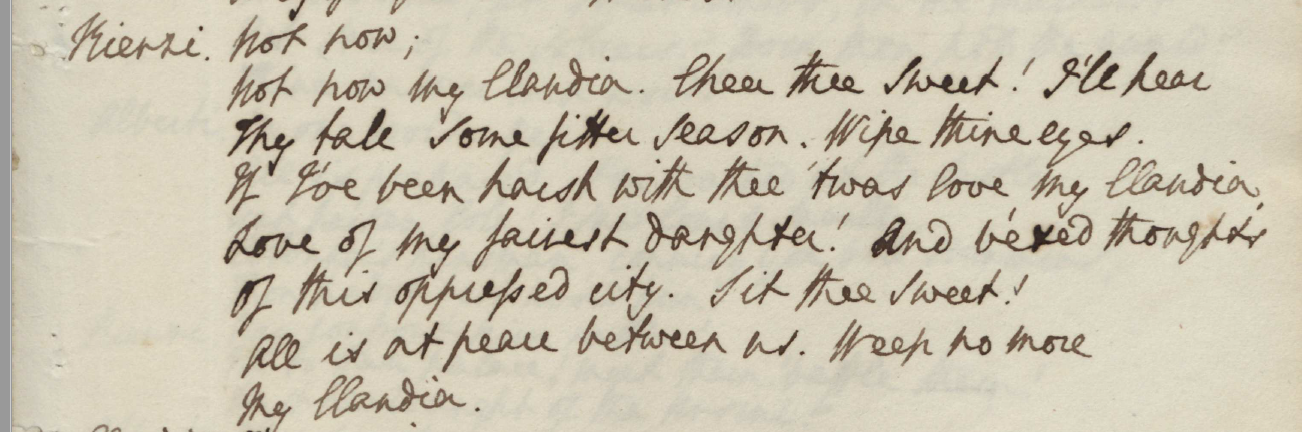 Rienzi. Not now;
Not now my Claudia. Cheer thee sweet! I'll hear
Thy tale some fitter season. Wipe thine eyes.
If I've been harsh with thee 'twas love my Claudia,
Love of my fairest daughter! And vexed thoughts
Of this oppressed city. Sit thee sweet!
All is at peace between us. Weep no more
My Claudia.